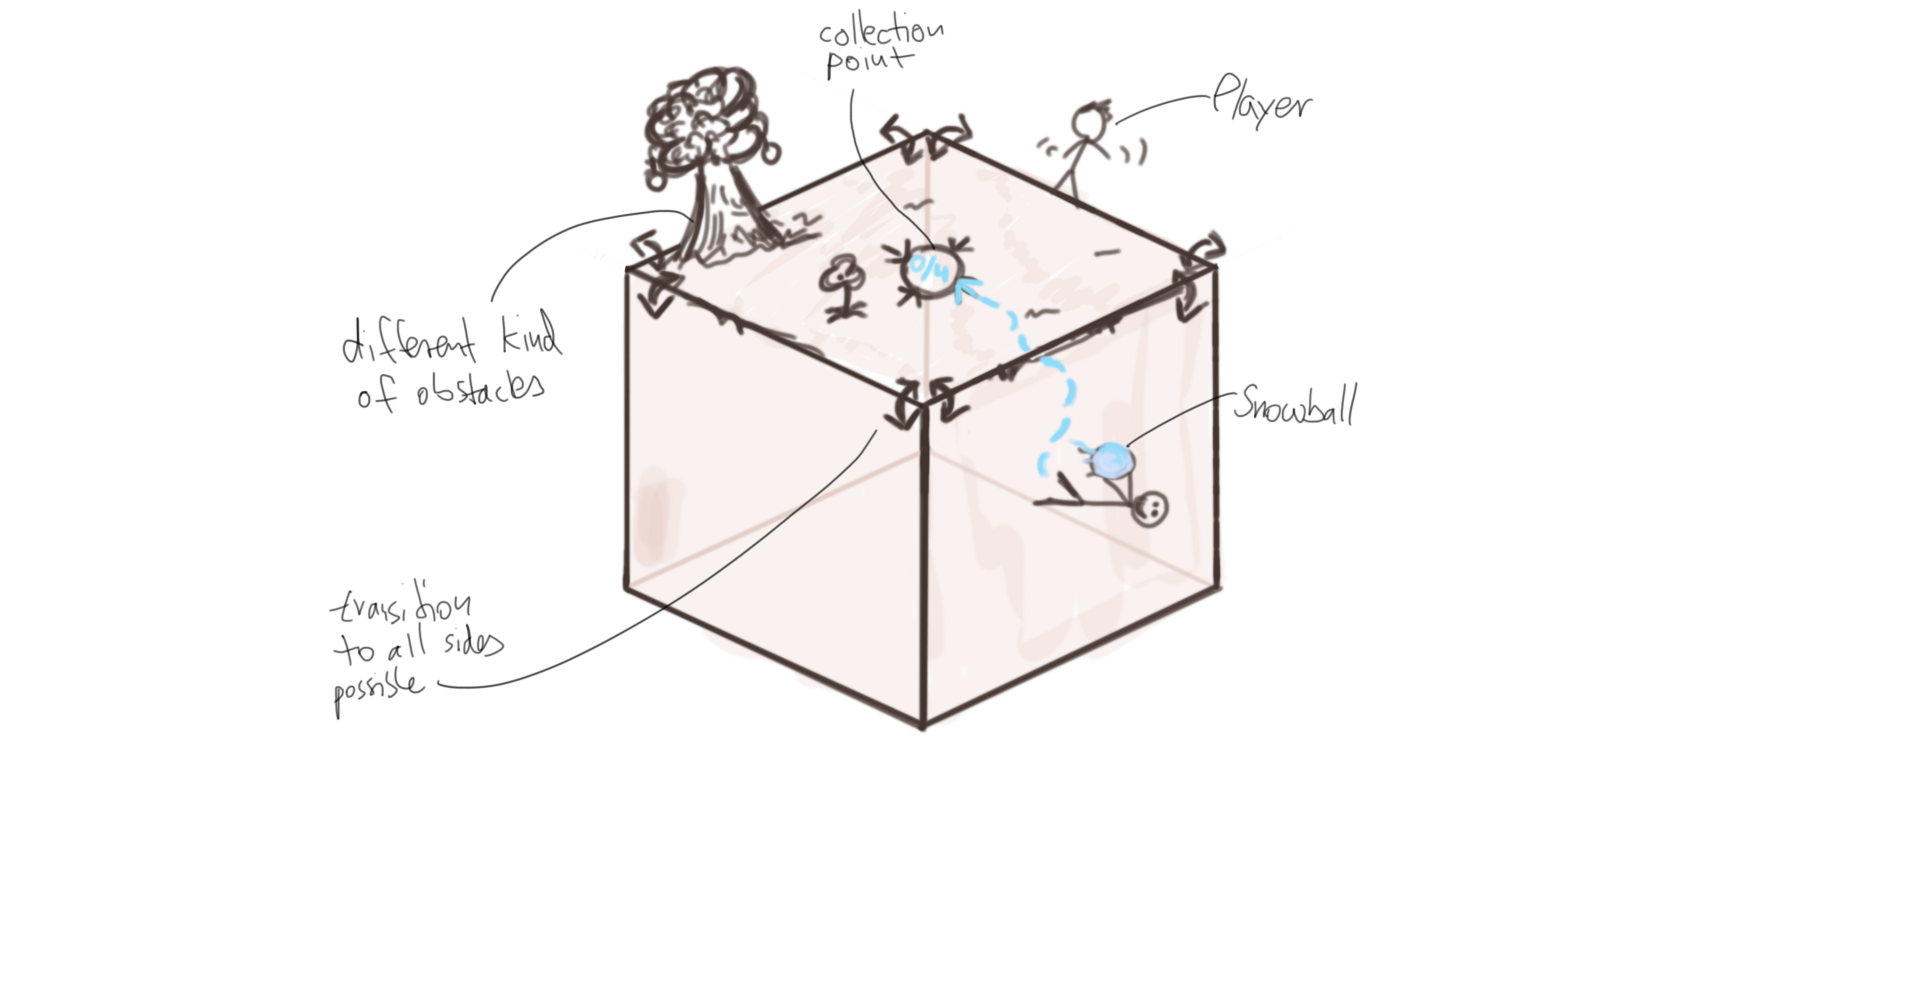 collection
point
Player
0/4
different kind
of obstacles
Snowball
transition
to all sides
possible